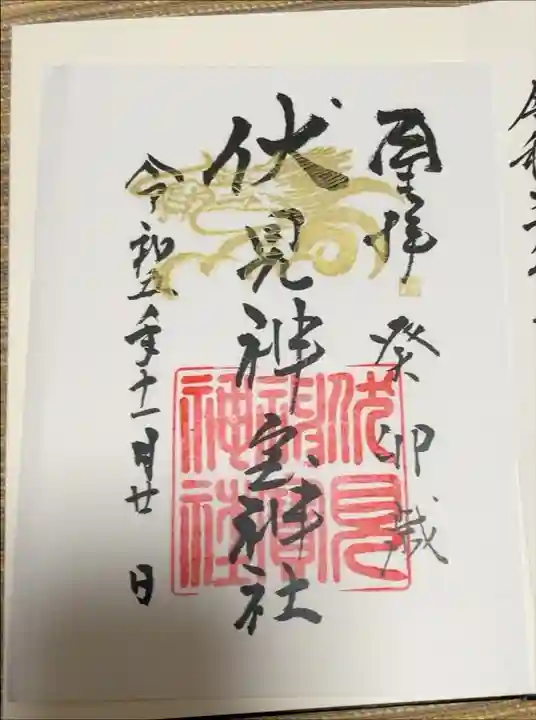 令和
拝 癸卯歳
伏見神宝神社
令和五年十一月廿 日
伏見
神寶
神社